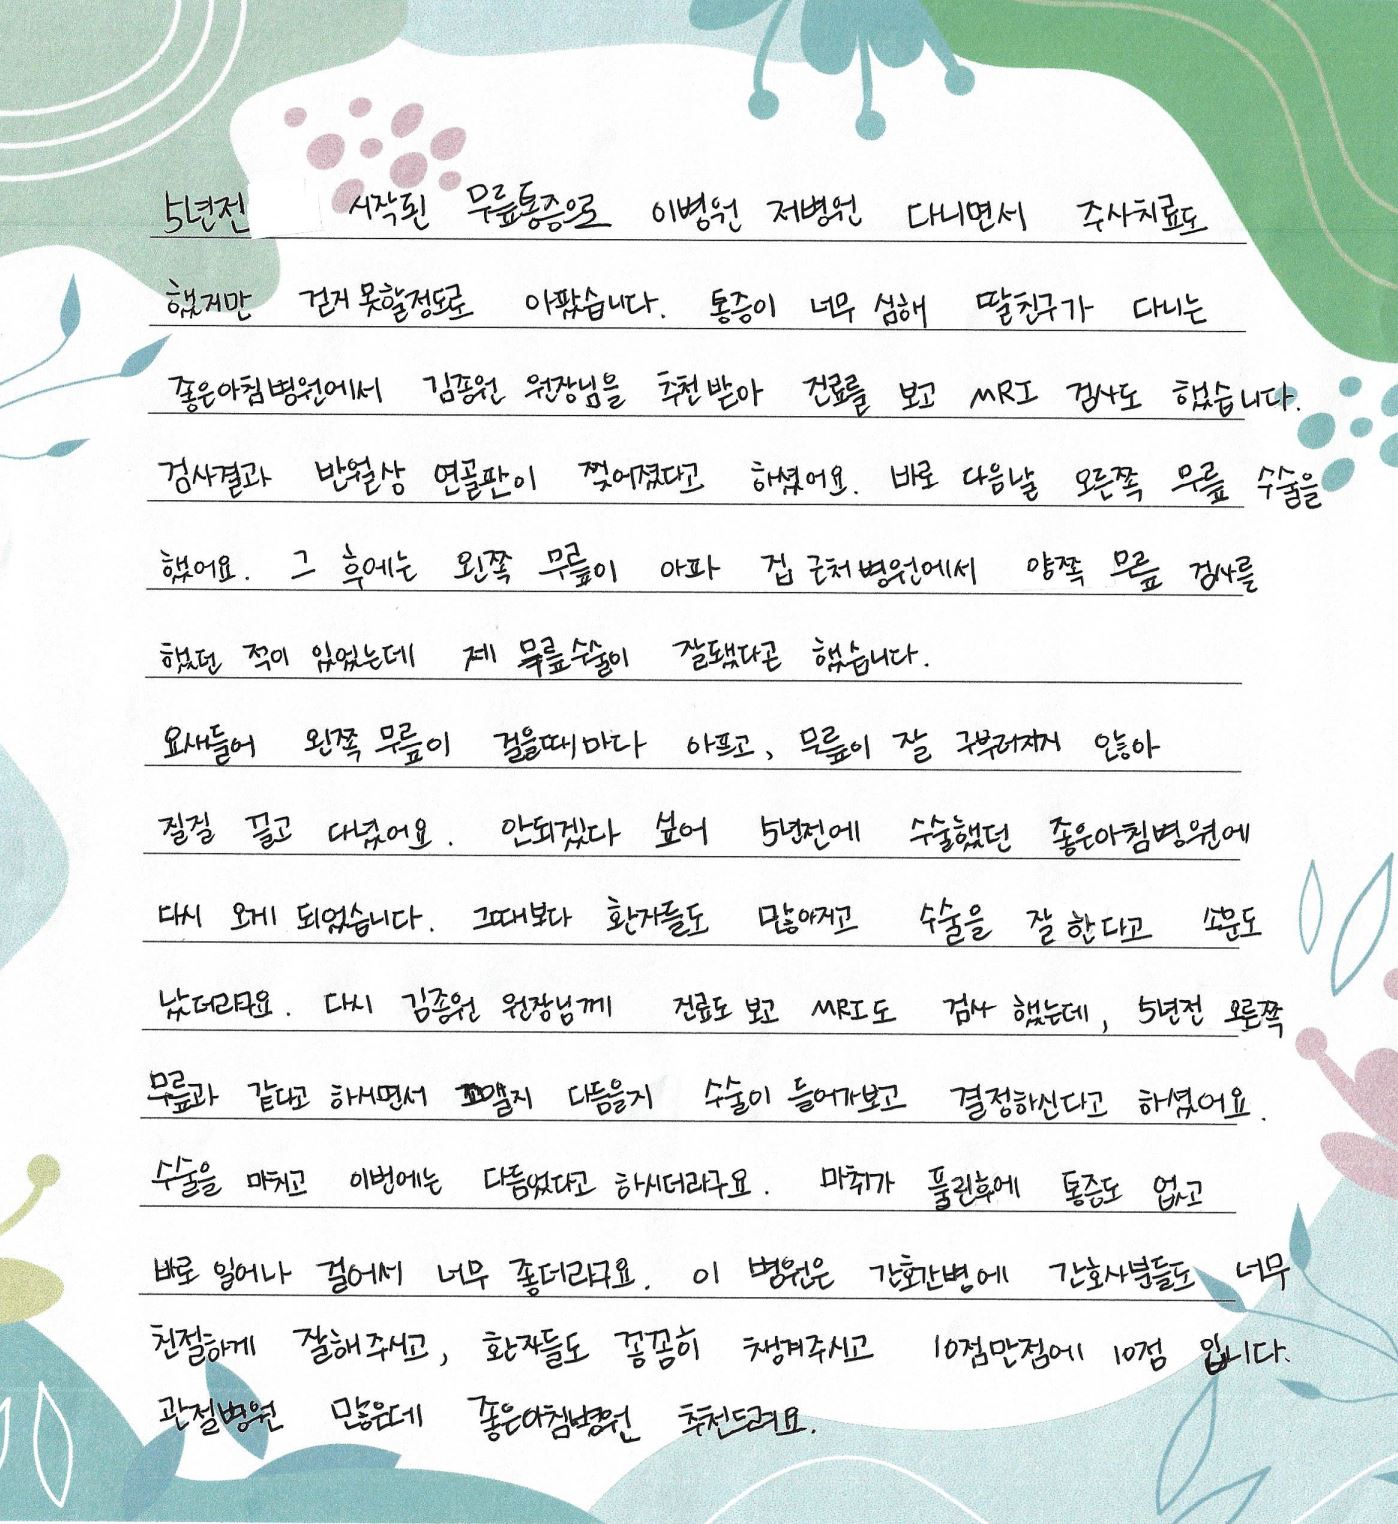 5년전 시작된 무릎통증으로 이병원 저병원 다니면서 주사치료도
했지만 걷지 못할정도로 아팠습니다. 통증이 너무 심해 딸친구가 다니는
좋은아침병원에서 김종원 원장님을 추천받아 진료를 보고 MRI 검사도 했습니다.
검사결과 반월상 연골판이 찢어졌다고 하셨어요. 바로 다음날 오른쪽 무릎 수술을
했어요. 그 후에는 왼쪽 무릎이 아파 집 근처병원에서 양쪽 무릎 검사를
했던 적이 있었는데 제 무릎수술이 잘됐다곤 했습니다.
요새들어 왼쪽 무릎이 걸을때마다 아프고, 무릎이 잘 구부러지지 않아
질질 끌고 다녔어요. 안되겠다 싶어 5년전에 수술했던 좋은아침병원에
다시 오게 되었습니다. 그때보다 환자들도 많아지고 수술을 잘 한다고 소문도
났더라구요. 다시 김종원 원장님께 진료도 보고 MRI도 검사 했는데, 5년전 오른쪽
무릎과 같다고 하시면서 꼬맬지 다듬을지 수술이 들어가보고 결정하신다고 하셨어요.
수술을 마치고 이번에는 다듬었다고 하시더라구요. 마취가 풀린후에 통증도 없고
바로 일어나 걸어서 너무 좋더라구요. 이 병원은 간호간병에 간호사분들도 너무
친절하게 잘해주시고, 환자들도 꼼꼼히 챙겨주시고 10점만점에 10점 입니다.
관절병원 많은데 좋은아침병원 추천드려요.